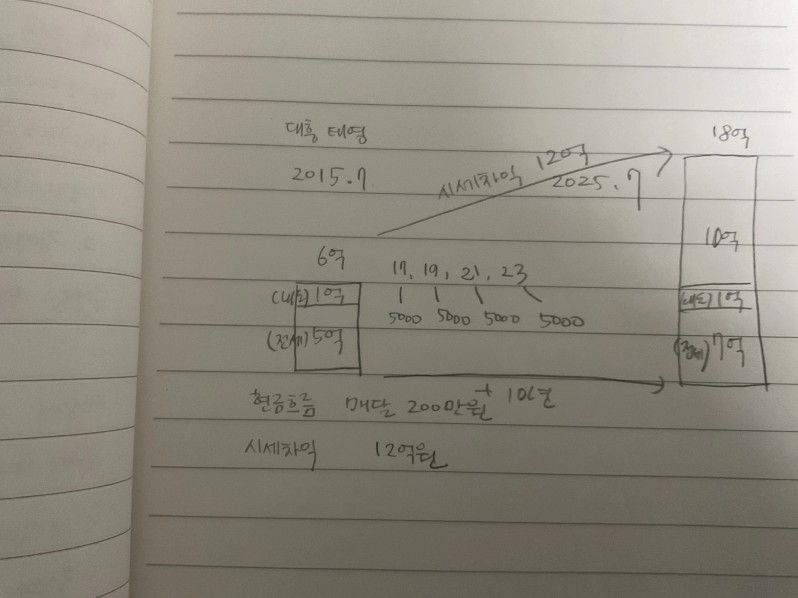 대흥 태영
2015.7
18억
시세차익 12억
2025.7
6억
17, 19, 21, 23
10억
(대출) 1억
5000 5000 5000 5000
(대출) 1억
(전세) 5억
(전세) 7억
현금흐름 매달 200만원 + 10년
시세차익 12억원